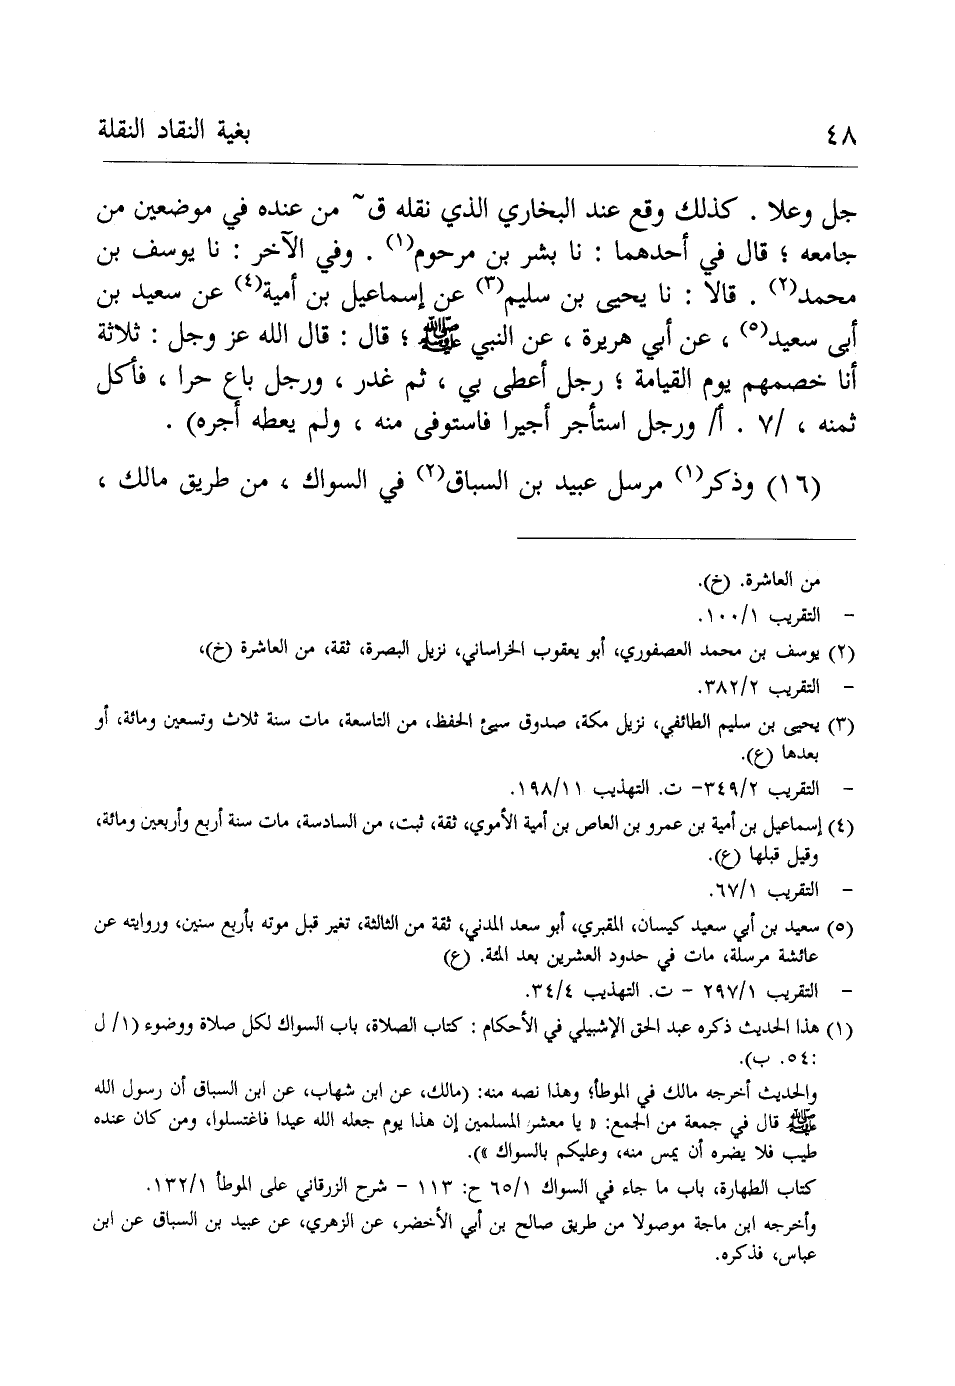 ٤٨ بغية النقاد النقلة
جل وعلا . كذلك وقع عند البخاري الذي نقله ق~ من عنده في موضعين من
جامعه ؛ قال في أحدهما : نا بشر بن مرحوم(١) . وفي الآخر : نا يوسف بن
محمد(٢) . قالا : نا يحيى بن سليم(٣) عن إسماعيل بن أمية(٤) عن سعيد بن
أبى سعيد(٥) ، عن أبي هريرة ، عن النبي ﷺ ؛ قال : قال الله عز وجل : ثلاثة
أنا خصمهم يوم القيامة ؛ رجل أعطى بي ، ثم غدر ، ورجل باع حرا ، فأكل
ثمنه ، /٧ . أ/ ورجل استأجر أجيرا فاستوفى منه ، ولم يعطه أجره) .
(١٦) وذكر(١) مرسل عبيد بن السباق(٢) في السواك ، من طريق مالك ،
من العاشرة. (خ).
- التقريب ١/١٠٠.
(٢) يوسف بن محمد العصفوري، أبو يعقوب الخراساني، نزيل البصرة، ثقة، من العاشرة (خ)،
- التقريب ٢/٣٨٢.
(٣) يحيى بن سليم الطائفي، نزيل مكة، صدوق سيئ الحفظ، من التاسعة، مات سنة ثلاث وتسعين ومائة، أو
بعدها (ع).
- التقريب ٢/٣٤٩- ت. التهذيب ١١/١٩٨.
(٤) إسماعيل بن أمية بن عمرو بن العاص بن أمية الأموي، ثقة، ثبت، من السادسة، مات سنة أربع وأربعين ومائة،
وقيل قبلها (ع).
- التقريب ١/٦٧.
(٥) سعيد بن أبي سعيد كيسان، المقبري، أبو سعد المدني، ثقة من الثالثة، تغير قبل موته بأربع سنين، وروايته عن
عائشة مرسلة، مات في حدود العشرين بعد المئة. (ع)
- التقريب ١/٢٩٧ - ت. التهذيب ٤/٣٤.
(١) هذا الحديث ذكره عبد الحق الإشبيلي في الأحكام : كتاب الصلاة، باب السواك لكل صلاة ووضوء (١/ ل
:٥٤. ب).
والحديث أخرجه مالك في الموطأ؛ وهذا نصه منه: (مالك، عن ابن شهاب، عن ابن السباق أن رسول الله
ﷺ قال في جمعة من الجمع: « يا معشر المسلمين إن هذا يوم جعله الله عيدا فاغتسلوا، ومن كان عنده
طيب فلا يضره أن يمس منه، وعليكم بالسواك »).
كتاب الطهارة، باب ما جاء في السواك ١/٦٥ ح: ١١٣ - شرح الزرقاني على الموطأ ١/١٣٢.
وأخرجه ابن ماجة موصولا من طريق صالح بن أبي الأخضر، عن الزهري، عن عبيد بن السباق عن ابن
عباس، فذكره.